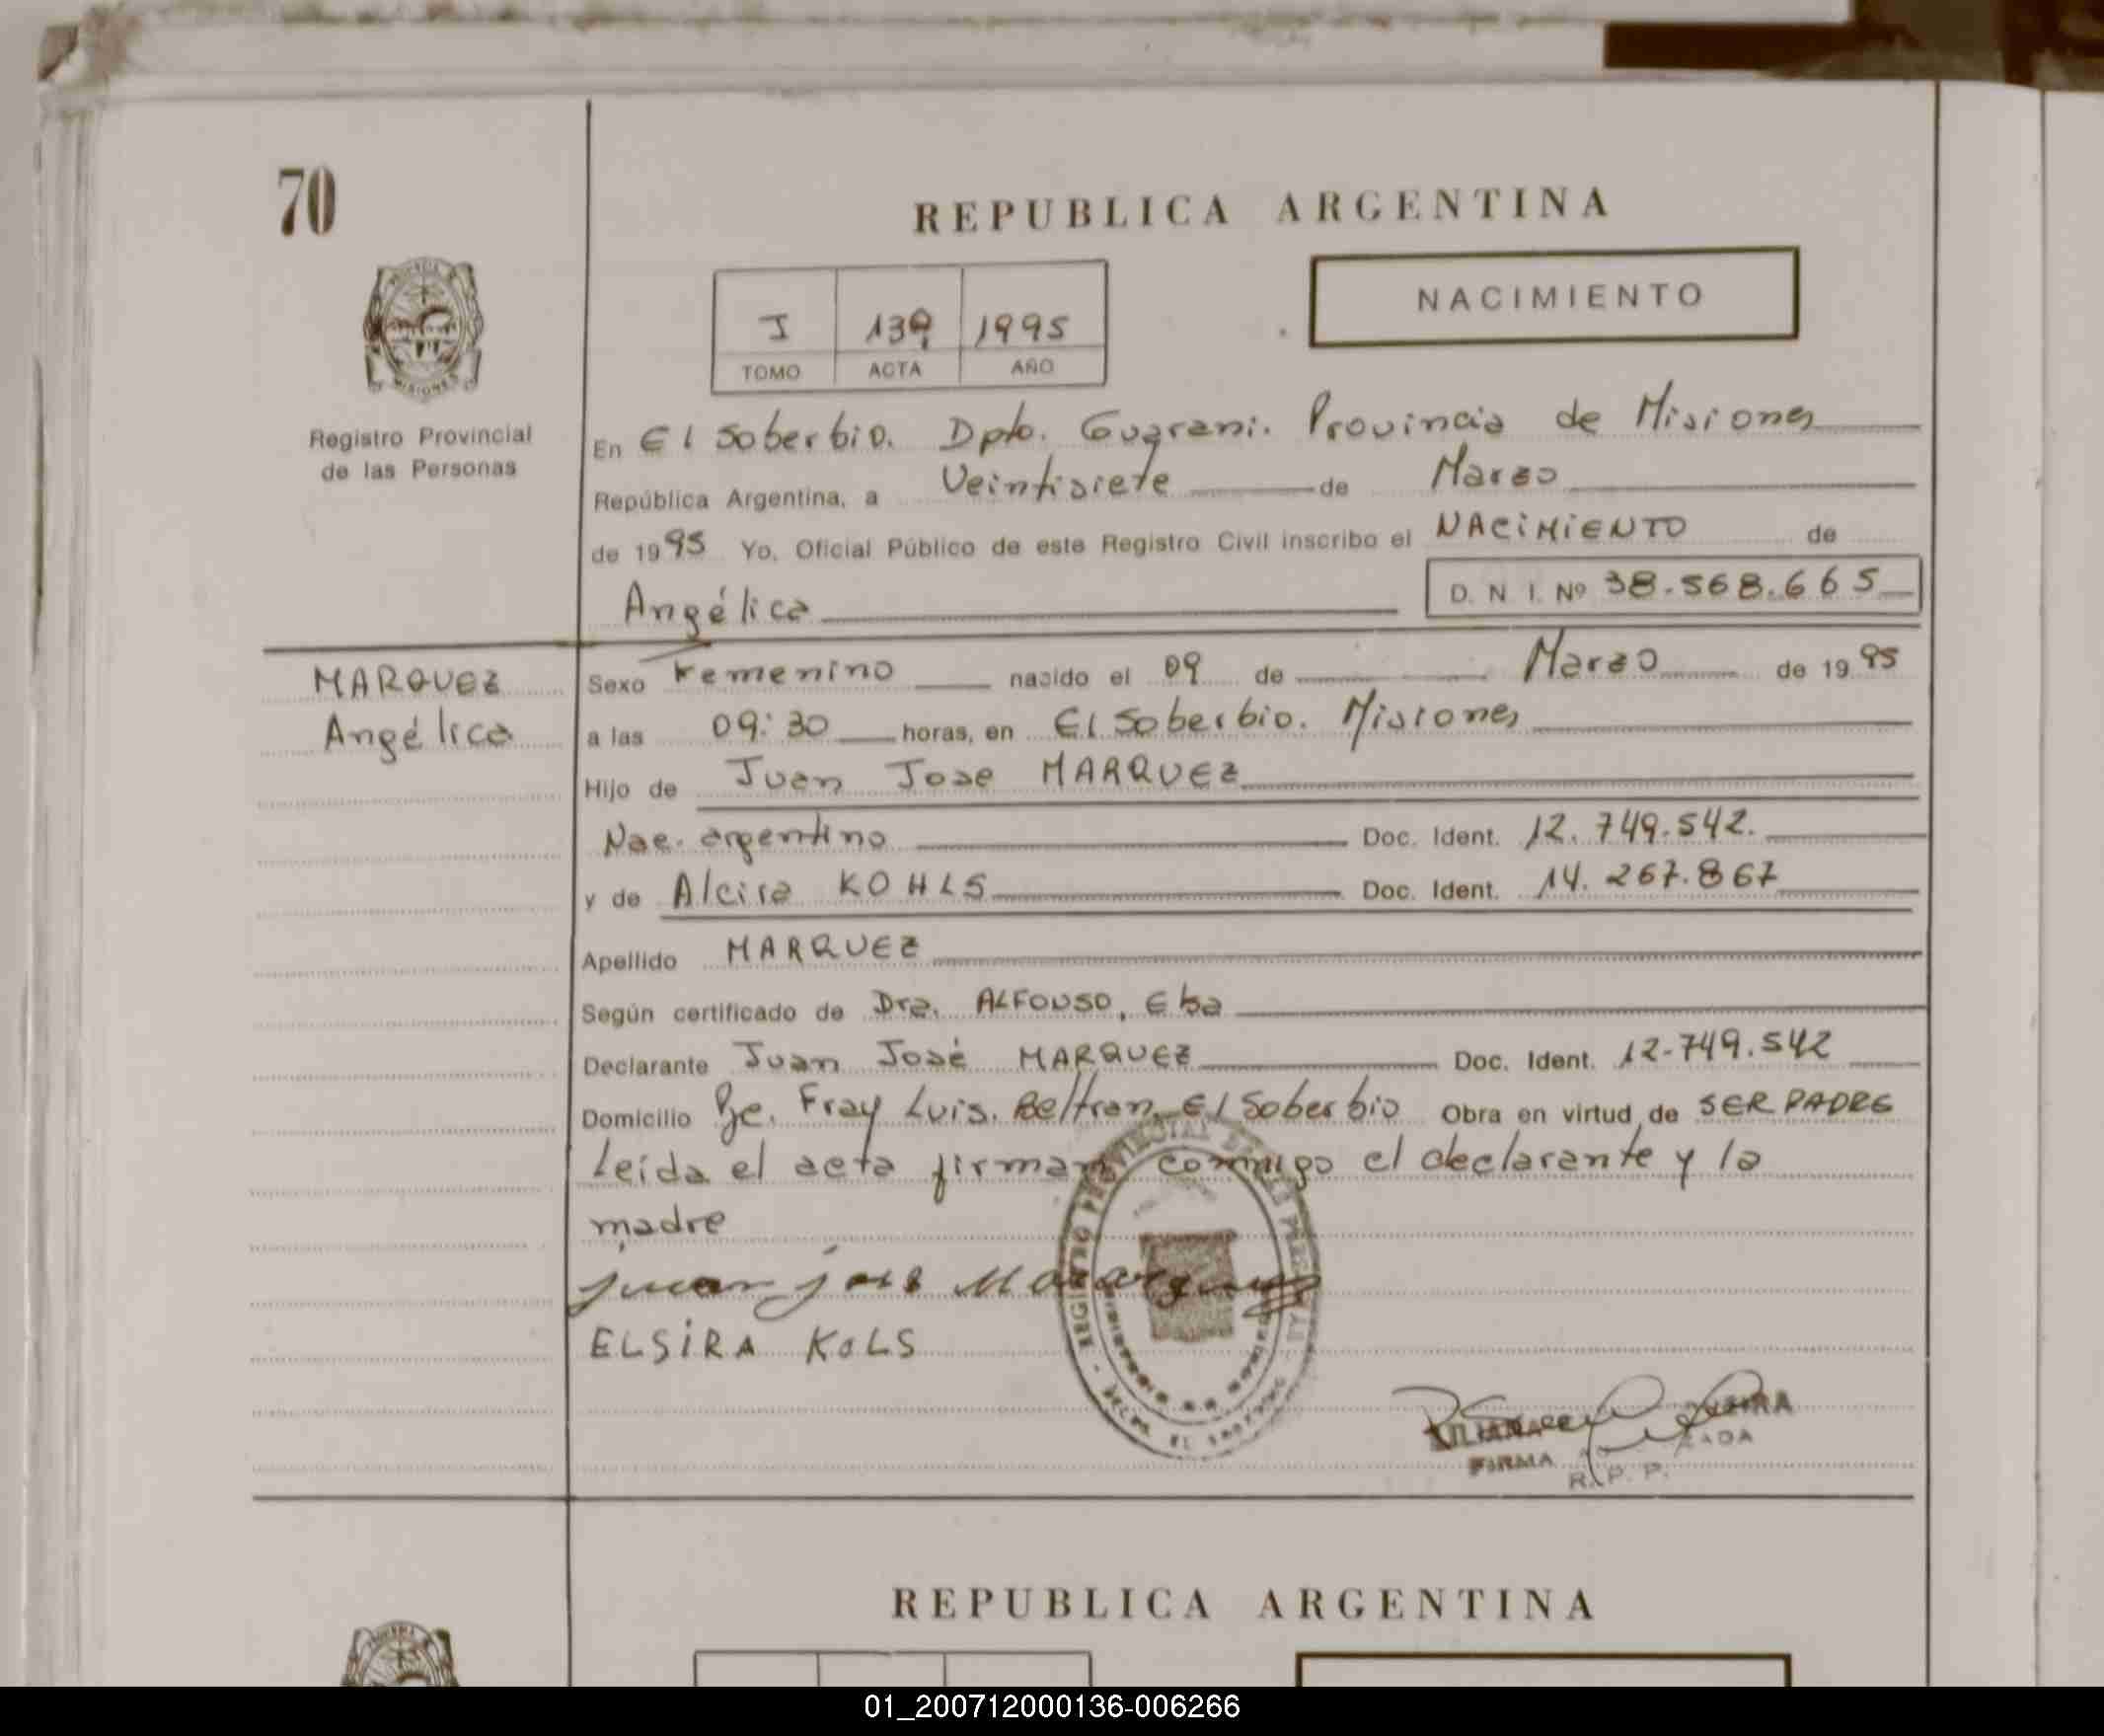 70
REPUBLICA ARGENTINA
NACIMIENTO
I 139 1995
TOMO ACTA AÑO
Registro Provincial
de las Personas
En El Soberbio. Dpto. Guarani. Provincia de Misiones
República Argentina, a Veintisiete de Marzo
de 1995 Yo, Oficial Público de este Registro Civil inscribo el NACIMIENTO de
Angélica D. N. I. Nº 38.568.665
MARQUEZ
Angélica
Sexo Femenino nacido el 09 de Marzo de 1995
a las 09:30 horas, en El Soberbio. Misiones
Hijo de Juan Jose MARQUEZ
Nac. argentino Doc. Ident. 12.749.542.
y de Alcira KOHLS Doc. Ident. 14.267.867
Apellido MARQUEZ
Según certificado de Dra. ALFONSO, Elsa
Declarante Juan José MARQUEZ Doc. Ident. 12-749.542
Domicilio Fray Luis. Beltran. El Soberbio Obra en virtud de SER PADRE
Leída el acta firman conmigo el declarante y la
madre
juan jose
ELSIRA KOLS
FIRMA
R. P. P.
REPUBLICA ARGENTINA
01_200712000136-006266